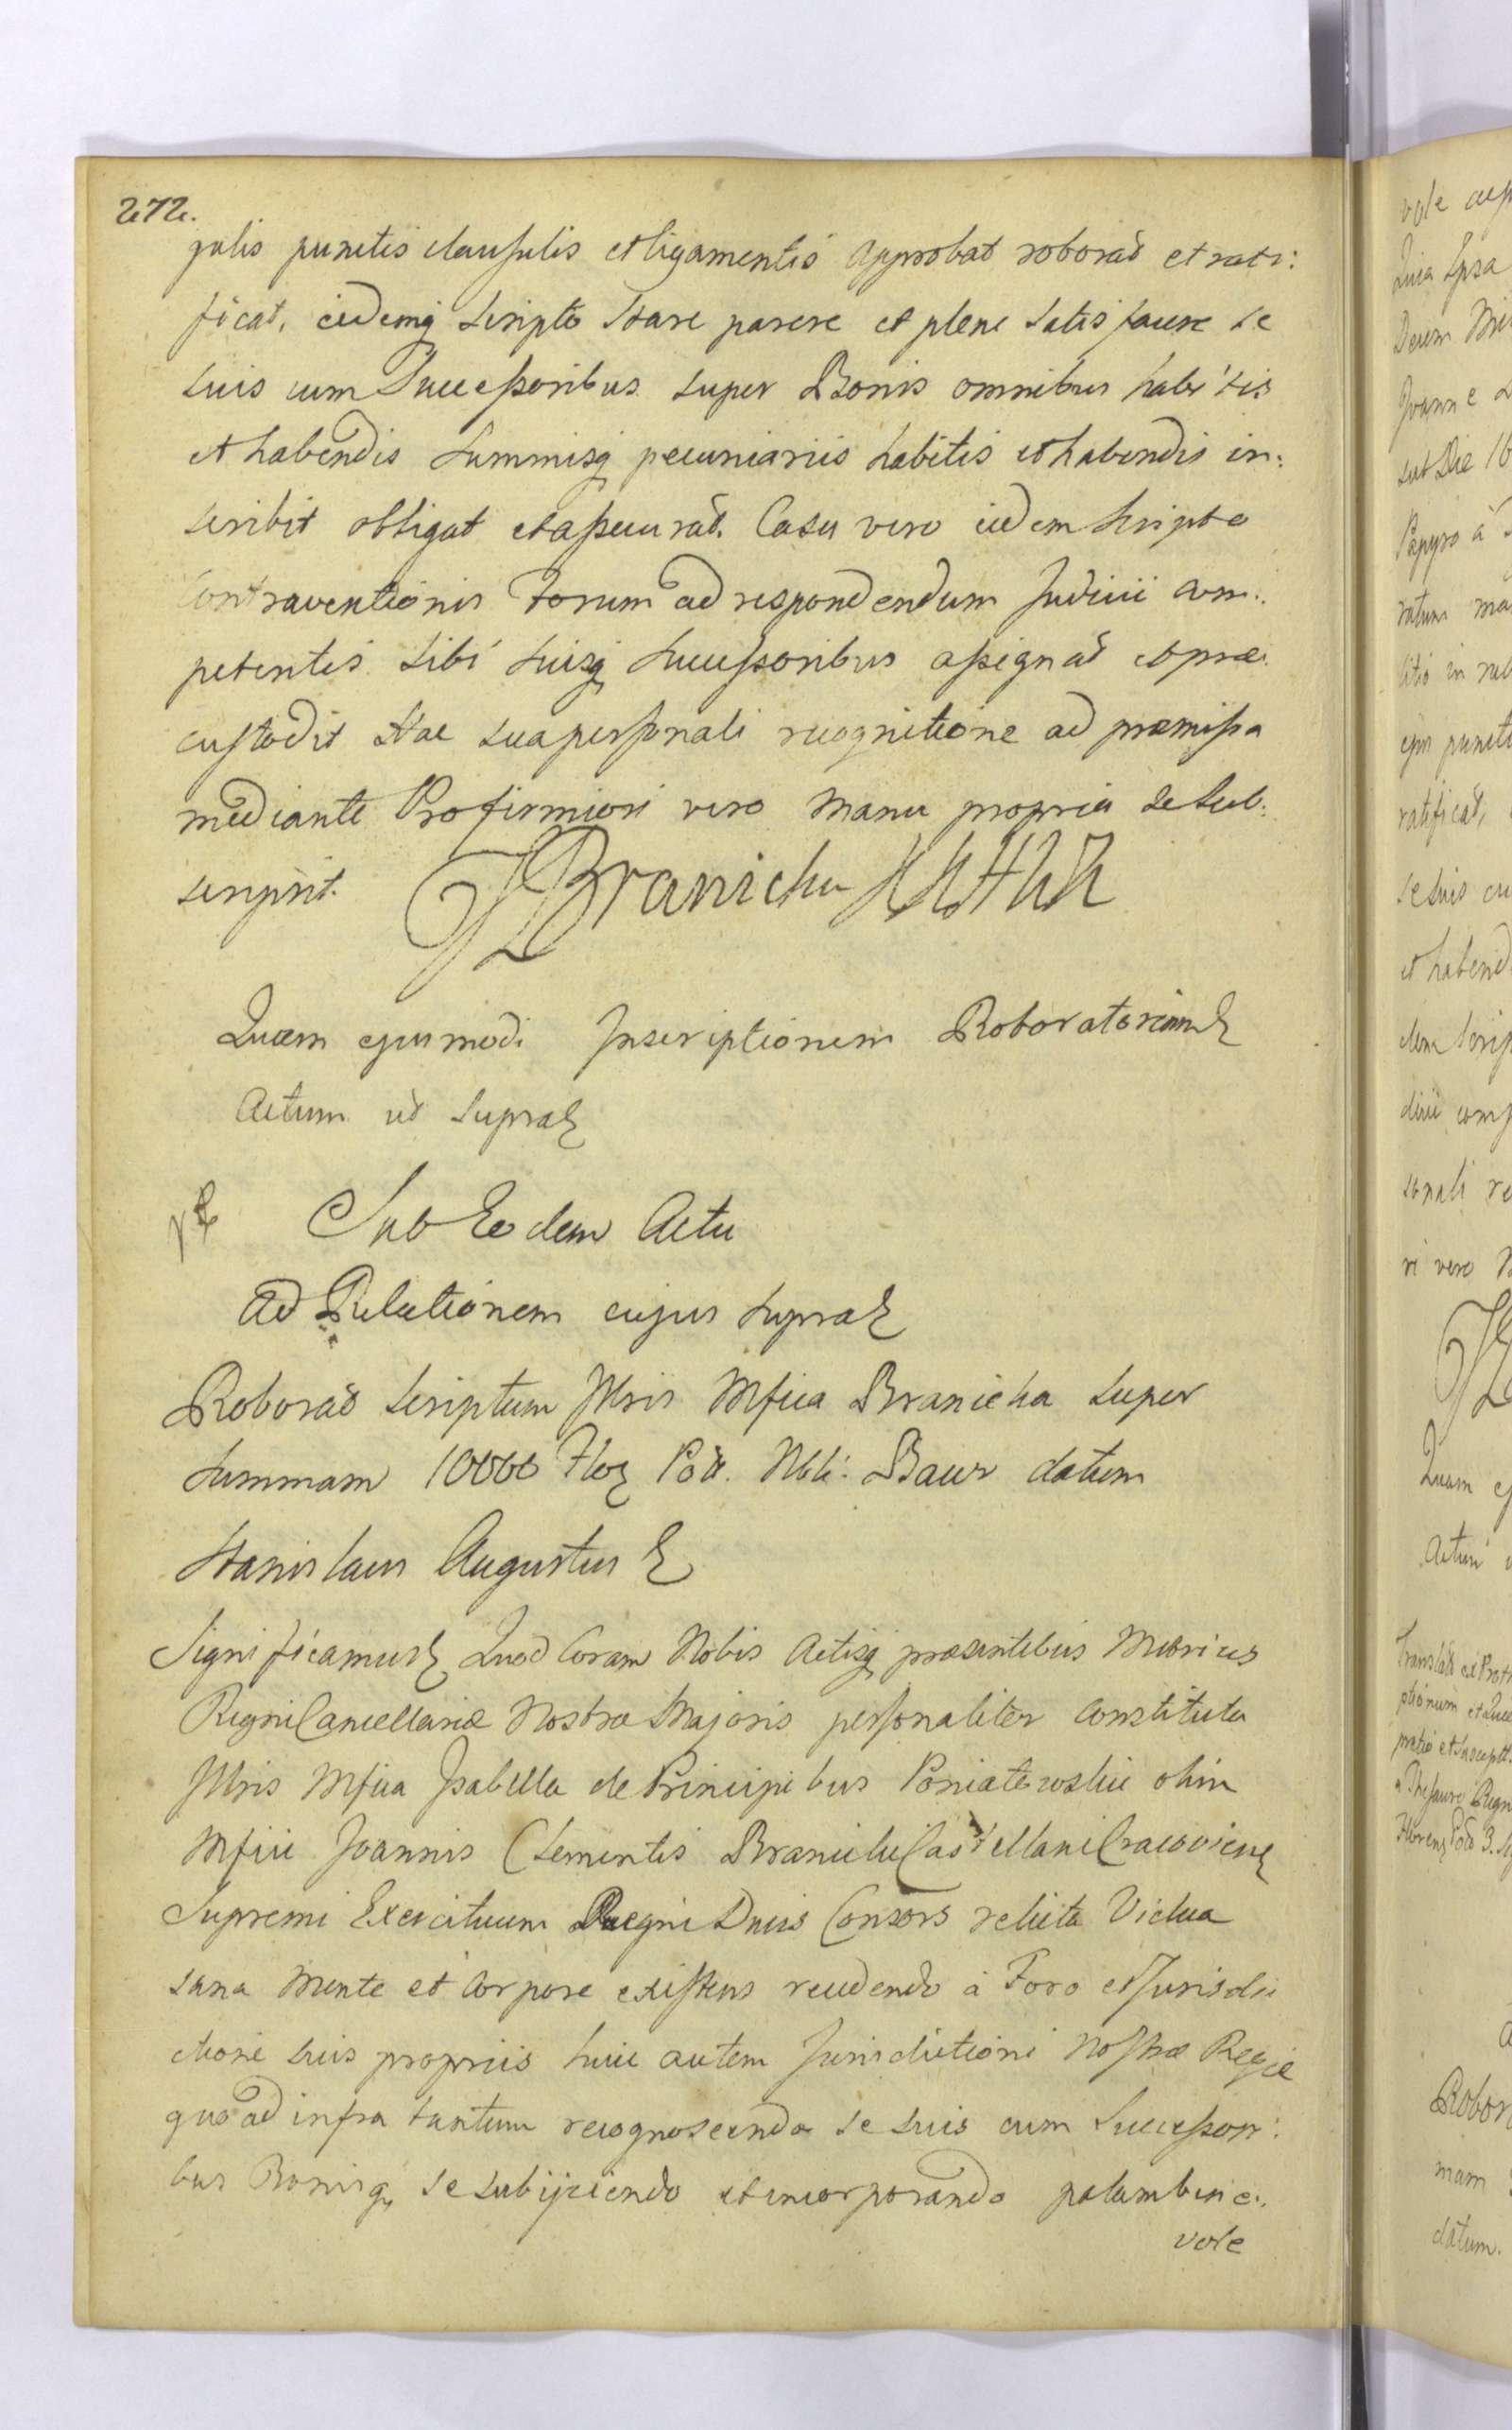 272.
gulis punctis clausulis et ligamentis approbat roborat et rati:
ficat, eidemq scripto stare parere et plene satisfacere se
suis cum Successoribus super Bonis omnibus habitis
et habendis summisq pecuniariis habitis et habendis in:
scribit obligat et assecurat. Casu vero eidem scripto
Contraventionis Forum ad respondendum Judicii com:
petentis sibi suisq successoribus assignat et præ:
custodit Hac sua personali recognitione ad præmissa
mediante Pro firmiori vero manu propria se sub:
scripsit. Branicka
Quam ejusmodi Inscriptionem Roboratoriam
Actum ut supra
Sub Eodem Actu
Ad Relationem cujus supra
Roborat scriptum Illris Mfica Branicka super
summam 10000 Flo Pol. Nbli. Baur datum
Stanislaus Augustus
Significamus Quod Coram Nobis Actisq præsentibus Metrices
Regni Cancellariæ Nostræ Majoris personaliter Constituta
Illris Mfica Isabella de Principibus Poniatowskie olim
Mfici Joannis Clementis Branicki Castellani Cracovien
Supremi Exercituum Regni Ducis Consors relicta Vidua
sana mente et Corpore existens recedendo à Foro et Jurisdi
ctione suis propriis huic autem Jurisdictioni Nostræ Regiæ
quo ad infra tantum recognoscenda se suis cum Successori:
bus Bonisq se subijciendo et incorporando palam bene:
vole
vole
Quia Ipsa
Joanne
sub Die 16
Papyro à
ratum
litis in
ejus puncti
ratificat,
se suis cu
et habend
dem Scrip
dicii comp
sonali re
ri vero
Quam ej
Actum
Robor
mam
datum.